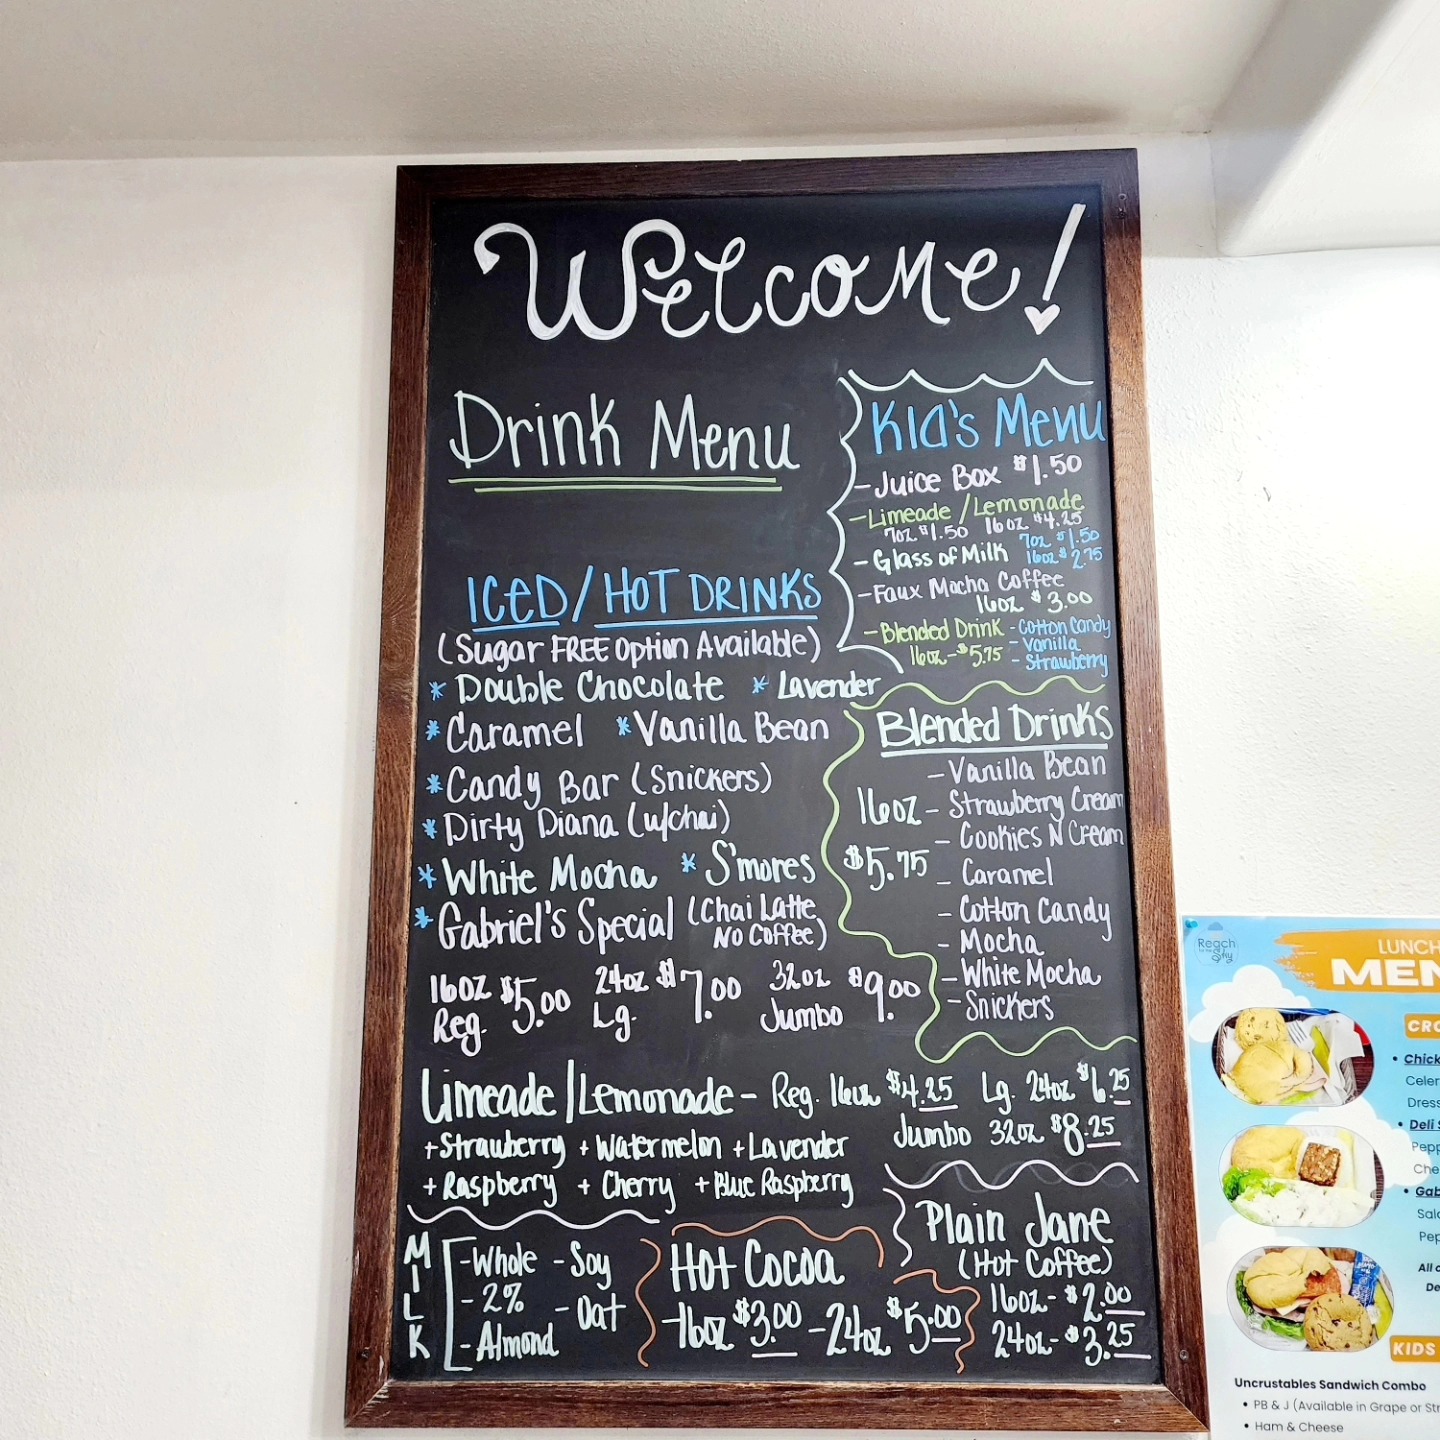 Welcome!
Drink Menu
Kid's Menu
- Juice Box $1.50
- Limeade / Lemonade
7oz $1.50 16oz $4.25
- Glass of Milk 7oz $1.50
16oz $2.75
- Faux Mocha Coffee
16oz $3.00
- Blended Drink - Cotton Candy
16oz - $5.75 - Vanilla
- Strawberry
Iced / Hot Drinks
(Sugar FREE Option Available)
* Double Chocolate * Lavender
* Caramel * Vanilla Bean
* Candy Bar (Snickers)
* Dirty Diana (w/chai)
* White Mocha * S'mores
* Gabriel's Special (Chai Latte
No Coffee)
16oz $5.00 24oz $7.00 32oz $9.00
Reg. Lg. Jumbo
Blended Drinks
16oz
$5.75
- Vanilla Bean
- Strawberry Cream
- Cookies N Cream
- Caramel
- Cotton Candy
- Mocha
- White Mocha
- Snickers
Limeade / Lemonade - Reg. 16oz $4.25 Lg. 24oz $6.25
Jumbo 32oz $8.25
+ Strawberry + Watermelon + Lavender
+ Raspberry + Cherry + Blue Raspberry
MILK
- Whole - Soy
- 2% - Oat
- Almond
Hot Cocoa
- 16oz $3.00 - 24oz $5.00
Plain Jane
(Hot Coffee)
16oz - $2.00
24oz - $3.25
Reach
Sky
LUNCH
MEN
CRO
• Chick
Celer
Dress
• Deli S
Pepp
Che
• Gab
Sala
Pep
All c
De
KIDS
Uncrustables Sandwich Combo
• PB & J (Available in Grape or Str
• Ham & Cheese